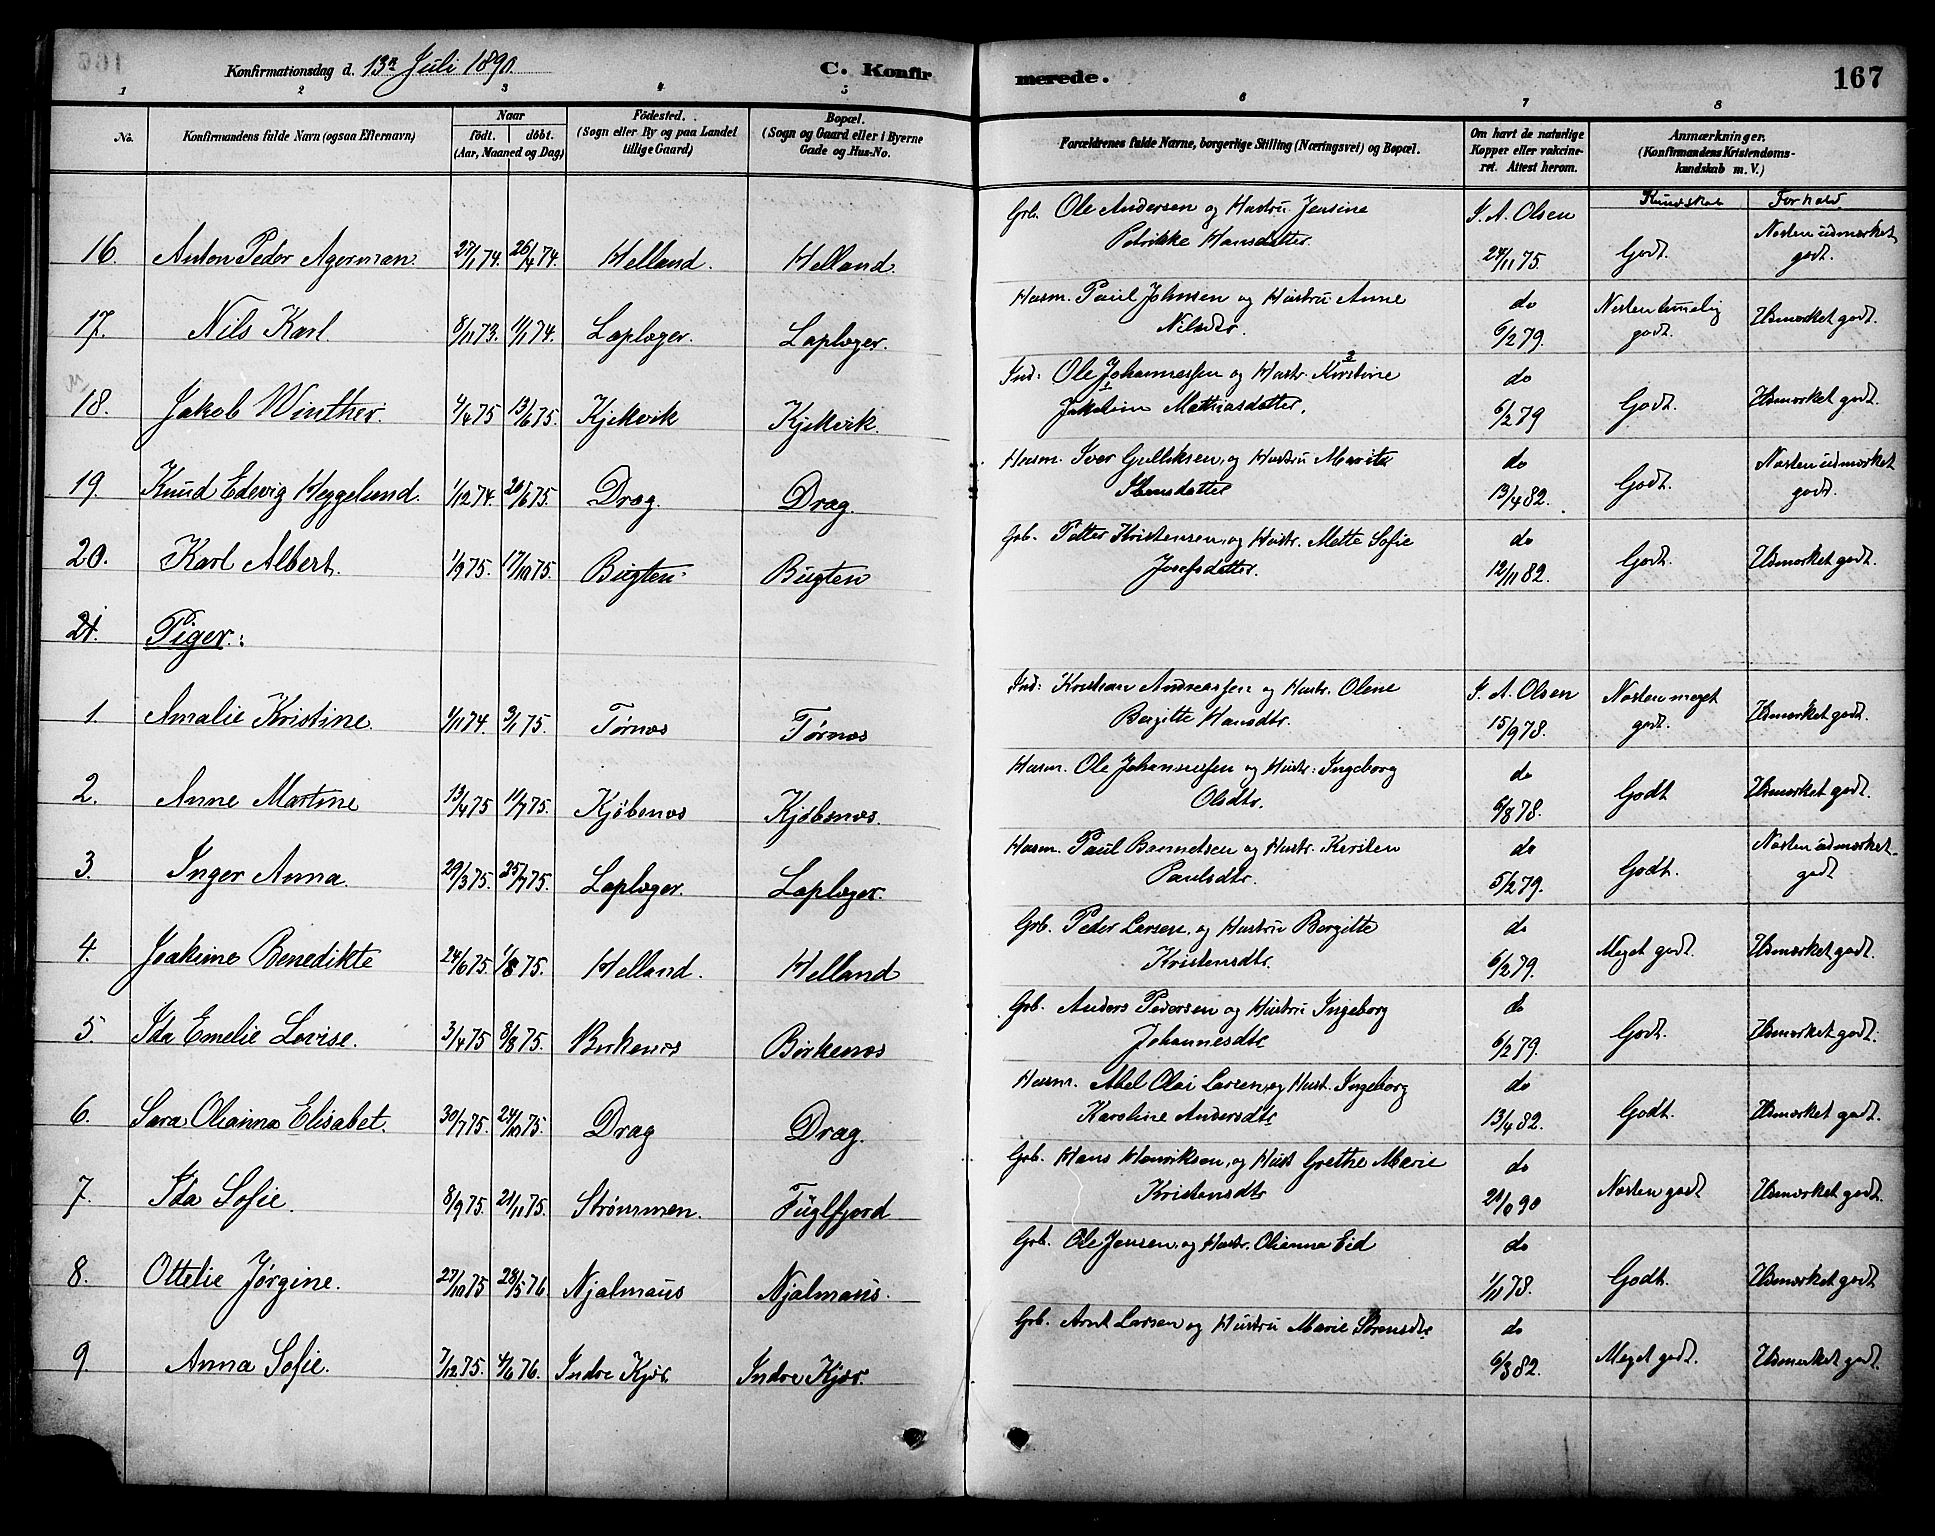 Konfirmationsdag d. 13de Juli 1890. C. Konfirmerede. 167
1 2 3 4 5 6 7 8
No. Konfirmandens fulde Navn (ogsaa Efternavn) Naar født. døbt. (Aar, Maaned og Dag) Fødested. (Sogn eller By og paa Landet tillige Gaard) Bopæl. (Sogn og Gaard eller i Byerne Gade og Hus-No. Forældrenes fulde Navne, borgerlige Stilling (Næringsvei) og Bopæl. Om havt de naturlige Kopper eller vakcineret. Attest herom. Anmærkninger. (Konfirmandens Kristendomskundskab m. V.)
Kundskab Forhold
16. Anton Peder Agerman. 27/1 74. 26/4 74. Helland. Helland. Grb. Ole Andersen og Hustru Jensine Petrikke Hansdatter. S. A. Olsen 24/11 75. Godt. Næsten udmærket godt.
17. Nils Karl. 8/11 73. 11/1 74. Lapleger. Lapleger. Husm. Paul Johnsen og Hustru Anne Nilsdtr. do 6/2 79. Næsten temelig godt. Udmærket godt.
18. Jakob Winther. 9/4 75 13/6 75. Kjekvik Kjekvik. Ind: Ole Johannessen og Hustr. Kirstine Jakobine Mathiasdatter. do 6/2 79 Godt. Udmærket godt.
19. Knud Edevig Heggelund. 1/12 74. 20/6 75. Drag. Drag. Husm. Iver Gulliksen, og Hustru Marita Stensdatter do 13/4 82. Godt. Næsten udmærket godt.
20. Karl Albert. 1/9 75. 17/10 75. Bugten. Bugten Grb. Petter Kristensen, og Hustr. Mette Sofie Josefsdatter. do 12/11 82. Godt. Udmærket godt.
21. Piger.:
1. Amalie Kristine. 1/11 74. 3/1 75. Tørnes Tørnes Ind: Kristian Andreassen og Hustr. Olene Bergitte Hansdtr. S. A. Olsen 15/9 78. Næsten meget godt. Udmærket godt.
2. Anne Martine 13/4 75 11/7 75. Kjøbsnes Kjøbsnes. Husm. Ole Johannessen og Hustr: Ingeborg Olsdtr. do 6/8 78. Godt Udmærket godt.
3. Inger Anna. 29/3 75. 25/7 75. Lapleger. Lapleger. Husm. Paul Benedtsen og Hustr. Kersten Paulsdtr. do 5/2 79. Godt. Næsten udmærket godt
4. Joakime Benedikte 24/6 75. 1/8 75. Helland. Helland Grb. Peder Larsen, og Hustru Bergitte Kristensdtr. do 6/2 79. Meget godt. Udmærket godt.
5. Ida Emelie Lovise. 3/4 75 8/8 75. Birkenes Birkenes Grb. Anders Pedersen og Hustru Ingeborg Johannesdtr do 6/2 79. Godt. Udmærket godt.
6. Sara Olianna Elisabet. 30/7 75. 24/10 75. Drag Drag. Husm. Abel Olai Larsen, og Hust. Ingeborg Karoline Andersdtr do 13/4 82. Godt. Udmærket godt.
7. Ida Sofie. 8/9 75. 21/11 75. Strømmen. Fuglfjord Grb. Hans Henriksen, og Hust Grethe Marie Kristensdtr do 90 Næsten godt Udmærket godt.
8. Ottelie Jørgine. 27/10 75 28/5 76. Njalmaus Njalmaus. Grb. Ole Jensen, og Hustr. Olianna Eid do 1/11 78. Godt. Udmærket godt.
9. Anna Sofie. 7/12 75. 4/6 76. Indre Kjær Indre Kjær. Grb. Arnt Larsen og Hustru Marie Sørensdtr do 6/3 82. Meget godt. Udmærket godt.